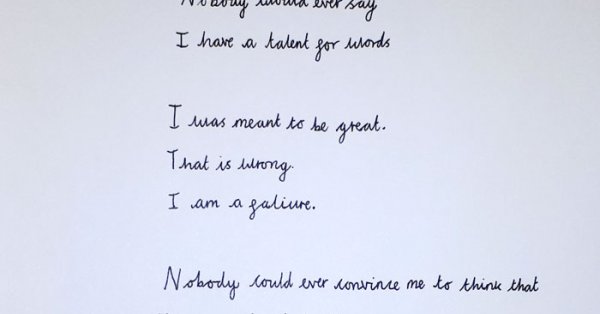 Nobody would ever say
I have a talent for words
I was meant to be great.
That is wrong.
I am a faliure.
Nobody could ever convince me to think that